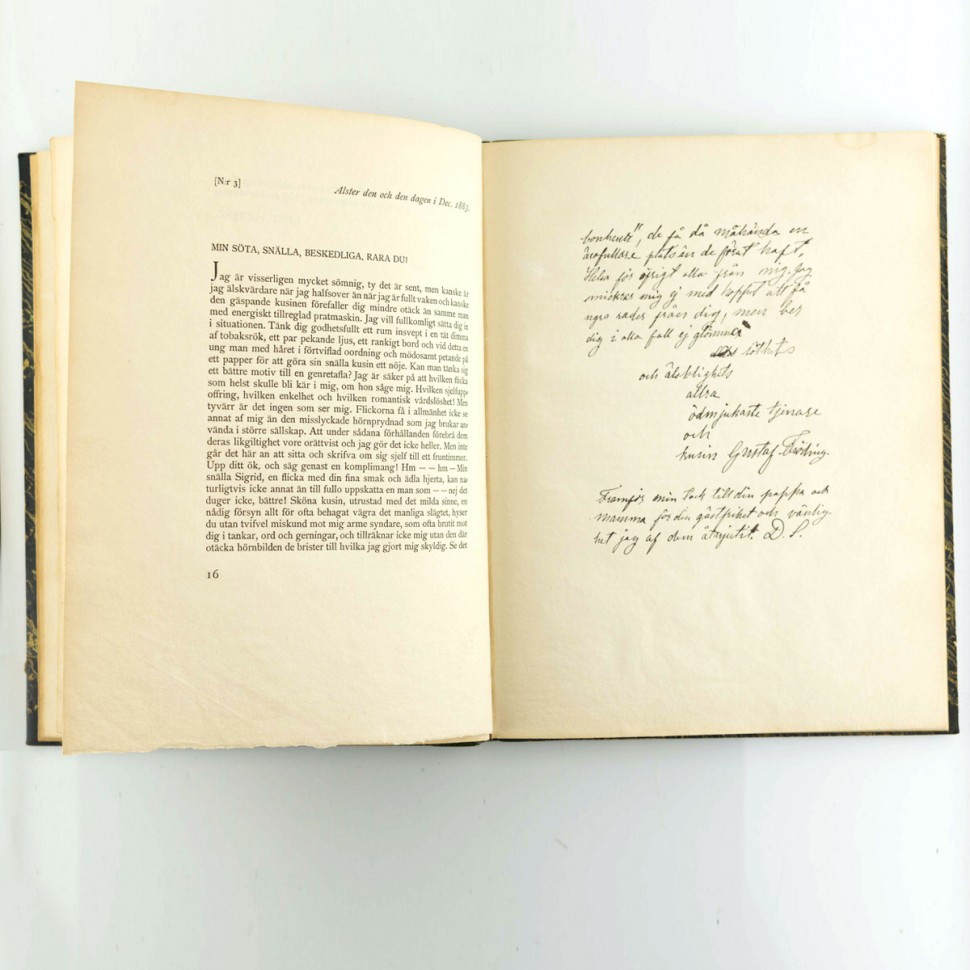 [N:r 3]
Alster den och den dagen i Dec. 1883.
MIN SÖTA, SNÄLLA, BESKEDLIGA, RARA DU!
Jag är visserligen mycket sömnig, ty det är sent, men kanske är
jag älskvärdare när jag halfsover än när jag är fullt vaken och kanske
den gäspande kusinen förefaller dig mindre otäck än samme man
med energiskt tillreglad pratmaskin. Jag vill fullkomligt sätta dig in
i situationen. Tänk dig godhetsfullt ett rum insvept i en tät dimma
af tobaksrök, ett par pekande ljus, ett rankigt bord och vid detta en
ung man med håret i förtviflad oordning och mödosamt petande på
ett papper för att göra sin snälla kusin ett nöje. Kan man tänka sig
ett bättre motiv till en genretafla? Jag är säker på att hvilken flicka
som helst skulle bli kär i mig, om hon såge mig. Hvilken sjelfupp-
offring, hvilken enkelhet och hvilken romantisk vårdslöshet! Men
tyvärr är det ingen som ser mig. Flickorna få i allmänhet icke se
annat af mig än den misslyckade hörnprydnad som jag brukar an-
vända i större sällskap. Att under sådana förhållanden förebrå dem
deras likgiltighet vore orättvist och jag gör det icke heller. Men inte
går det här an att sitta och skrifva om sig sjelf till ett fruntimmer.
Upp ditt ök, och säg genast en komplimang! Hm — — hm — Min
snälla Sigrid, en flicka med din fina smak och ädla hjerta, kan na-
turligtvis icke annat än till fullo uppskatta en man som — — nej det
duger icke, bättre! Sköna kusin, utrustad med det milda sinne, en
nådig försyn allt för ofta behagat vägra det manliga slägtet, hyser
du utan tvifvel miskund mot mig arme syndare, som ofta brutit mot
dig i tankar, ord och gerningar, och tillräknar icke mig utan den där
otäcka hörnbilden de brister till hvilka jag gjort mig skyldig. Se det
16
de få då måhända en
ärofullare plats än de förut haft,
Helsa för öfrigt alla från mig. Jag
mig ej med hoppet att få
några rader från dig, men ber
dig i alla fall ej glömma
täthets
och älsklighets
allra
ödmjukaste tjenare
och
kusin Gustaf Fröding.
Framför min tack till din pappa och
mamma för den gästfrihet och vänlig-
het jag af dem åtnjutit. D. S.